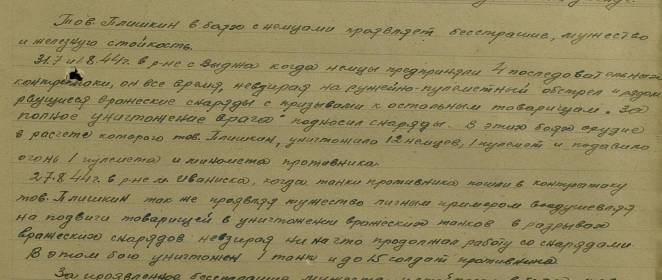 Тов. Плишкин в бою с немцами проявляет бесстрашие, мужество
и железную стойкость.
31.7 и 1.8.44г. в р-не с Выдна когда немцы предприняли 4 последовательных
контратаки, он все время, невзирая на ружейно-пулеметный обстрел и рядом
рвущиеся вражеские снаряды с призывами к остальным товарищам „За
полное уничтожение врага" подносил снаряды. В этих боях орудие
в расчете которого тов. Плишкин, уничтожило 12 немцев, 1 пулемет и подавило
огонь 1 пулемета и миномета противника.
27.8.44г. в р-не м. Иваниска, когда танки противника пошли в контратаку
тов. Плишкин так же проявляя мужество личным примером воодушевлял
на подвиги товарищей в уничтожении вражеских танков в разрывах
вражеских снарядов невзирая ни на что продолжал работу со снарядами.
В этом бою уничтожен 1 танк и до 15 солдат противника
За проявленное бесстрашие, мужество и